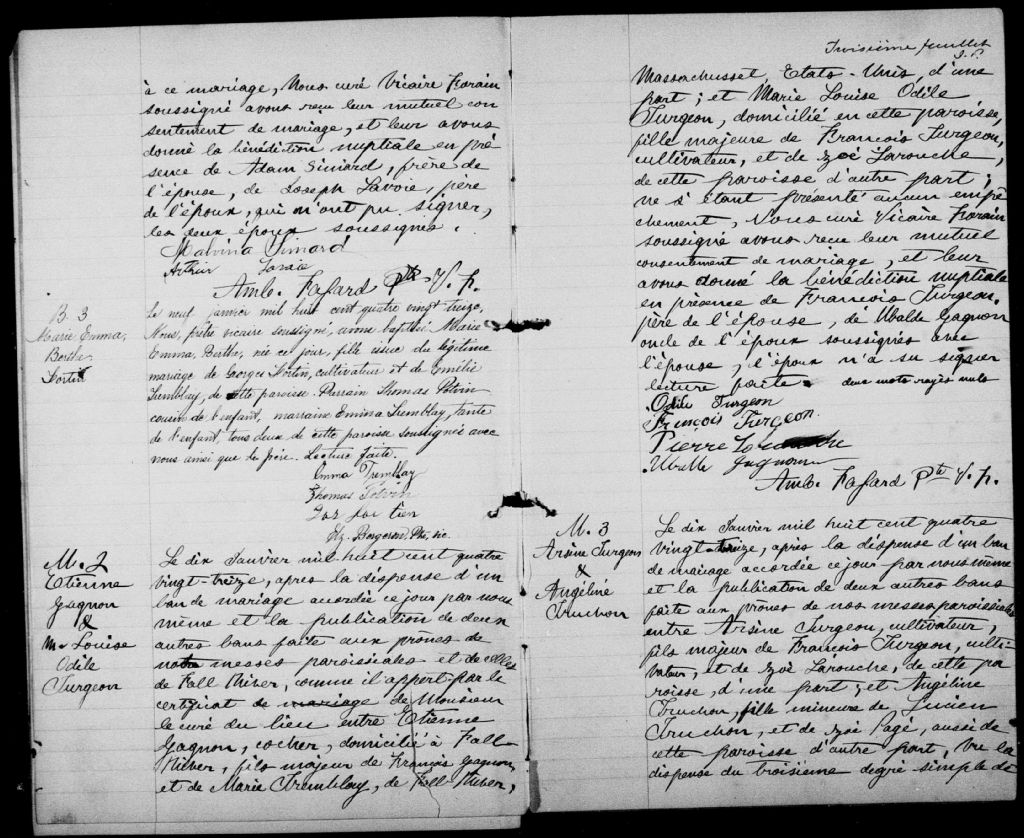 à ce mariage, Nous curé Vicaire Forain
soussigné avons reçu leur mutuel con
sentement de mariage, et leur avons
donné la bénédiction nuptiale en pré
sence de Adam Simard, frère de
l'épouse, de Joseph Lavoie, père
de l'époux, qui n'ont pu signer,
les deux époux soussignés.
Malvina Simard
Arthur Lavoie
Amb. Fafard Ptre V. f.
B. 3
Marie Emma,
Berthe
Fortin
Le neuf janvier mil huit cent quatre vingt treize,
Nous, prêtre vicaire soussigné, avons baptisé Marie
Emma, Berthe, née ce jour, fille issue du légitime
mariage de Georges Fortin, cultivateur et de Emélie
Tremblay, de cette paroisse. Parrain Thomas Potvin
cousin de l'enfant, marraine Emma Tremblay, tante
de l'enfant, tous deux de cette paroisse soussignés avec
nous ainsi que le père. Lecture faite.
Emma Tremblay
Thomas Potvin
Elz. Bergeron, Ptre, vic.
M. 2
Etienne
Gagnon
&
M. Louise
Odile
Turgeon
Le dix Janvier mil huit cent quatre
vingt-treize, après la dispense d'un
ban de mariage accordée ce jour par nous
même et la publication de deux
autres bans faite aux prônes de
nos messes paroissiales et de celles
de Fall River, comme il appert par le
certificat de mariage de Monsieur
le curé du lieu entre Etienne
Gagnon, cocher, domicilié à Fall
River, fils majeur de François Gagnon,
et de Marie Tremblay, de Fall River,
Troisième feuillet
Massachusset, Etats-Unis, d'une
part; et Marie Louise Odile
Turgeon, domicilié en cette paroisse,
fille majeure de François Turgeon,
cultivateur, et de Zoé Larouche,
de cette paroisse d'autre part;
ne s'étant présenté aucun empê
chement, Nous curé Vicaire Forain
soussigné avons reçu leur mutuel
consentement de mariage, et leur
avons donné la bénédiction nuptiale
en présence de François Turgeon,
père de l'épouse, de Ubalde Gagnon
oncle de l'époux soussignés avec
l'épouse, l'époux n'a su signer
lecture faite. deux mots rayés nuls
Odile Turgeon
François Turgeon
Pierre
Ubalde Gagnon
Amb. Fafard Ptre V. f.
M. 3
Arsène Turgeon
&
Angéline
Truchon
Le dix Janvier mil huit cent quatre
vingt-treize, après la dispense d'un ban
de mariage accordée ce jour par nous même
et la publication de deux autres bans
faite aux prônes de nos messes paroissiales
entre Arsène Turgeon, cultivateur,
fils majeur de François Turgeon, culti-
vateur, et de Zoé Larouche, de cette pa
roisse, d'une part; et Angéline
Truchon, fille mineure de Lucien
Truchon, et de Zoé Pagé, aussi de
cette paroisse d'autre part, Vu la
dispense du troisième degré simple de